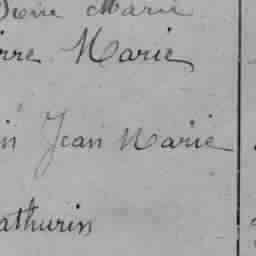 Marie
Marie
Jean Marie
athurin